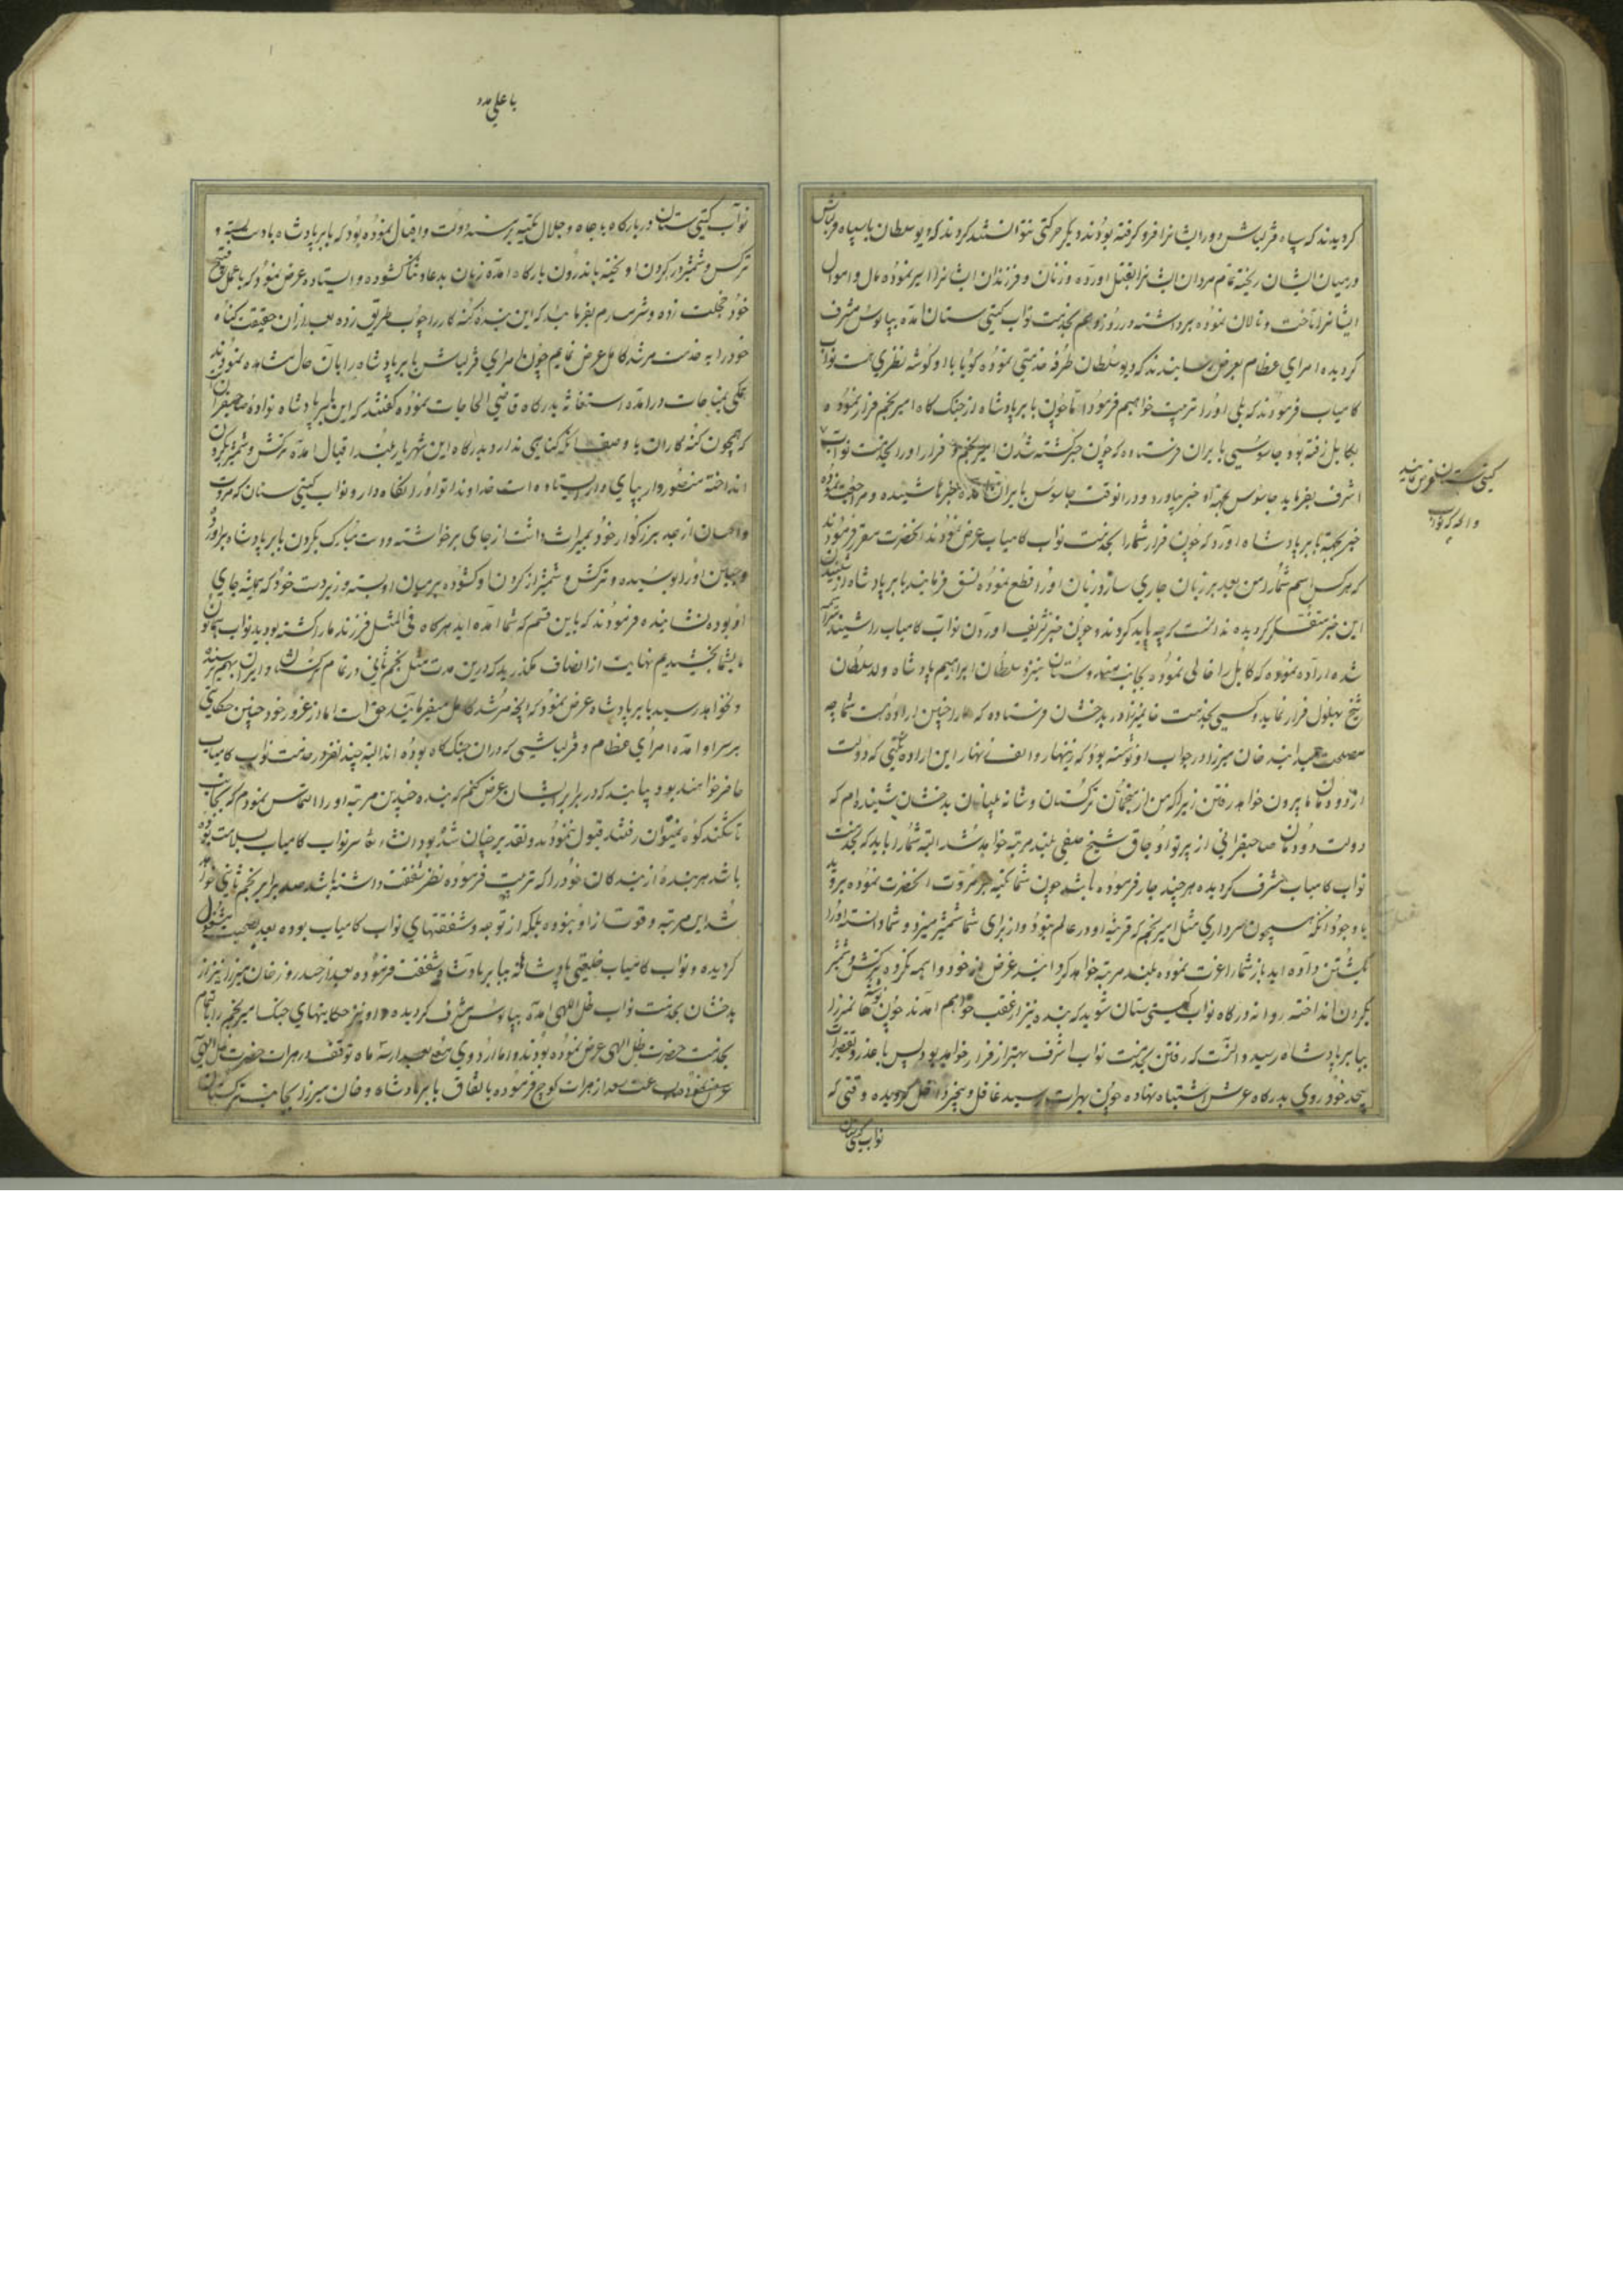 کردیدند که سپاه قزلباش دور ایشانرا فرو کرفته بودند و دیکر حرکتی نتوانستند کردند که دیو سلطان با سپاه قزلباش
در میان ایشان ریخته تمام مردان ایشانرا بقتل اورده و زنان و فرزندان ایشانرا اسیر نموده مال و اموال
ایشانرا تاخت و تالان نموده برداشته در روز بخدمت نواب کیتی ستان امده بپابوس مشرف
کردیده امرای عظام بعرض رسانیدند که دیو سلطان طرفه خدمتی نموده کویا با او کوشه نظری هست نواب
کامیاب فرمودند که بلی اورا تربیت خواهیم فرمود اما چون بابر پادشاه از جنک کاه امیر نجم فرار نموده
بکابل رفته بود جاسوسی بایران فرستاده که چون خبر کشته شدن امیر نجم و فرار اورا بخدمت نواب
اشرف بفرماید جاسوس بجهة او خبر بیاورد و درانوقت جاسوس بایران امده خبرها شنیده و مراجعت نموده
خبر بجهة بابر پادشاه اورد که چون فرار شمارا بخدمت نواب کامیاب عرض نمودند انحضرت مقرر فرمودند
که هرکس اسم شمارا من بعد بر زبان جاری سازد زبان اورا قطع نموده نسق فرمایند بابر پادشاه از شنیدن
این خبر متفکر کردیده ندانست که چه باید کرد و چون خبر تشریف اوردن نواب کامیاب را شنیده
شده اراده نموده که کابل را خالی نموده بجانب هندوستان بنزد سلطان ابراهیم پادشاه ولد سلطان
شیخ بهلول فرار نماید و کسی بخدمت خان میرزا در بدخشان فرستاده که مارا چنین اراده هست شما چه
مصلحت میدانید خان میرزا در جواب او نوشته بود که زینهار و الف زینهار این اراده نکنی که دولت
از دودمان ما بیرون خواهد رفتن زیرا که من از منجمان ترکستان و شانه بینان بدخشان شنیده ام که
دولت دودمان صاحبقرانی از پرتو اوجاق شیخ صفی بلند مرتبه خواهد شد البته شمارا باید که بخدمت
نواب کامیاب مشرف کردیده هرچند جار فرموده باشد چون شما تکیه بر مروت انحضرت نموده بروید
با وجود انکه همچون سرداری مثل امیر نجم که قرینه او در عالم نبود و از برای شما شمشیر میزد و شما دانسته اورا
بکشتن داده اید باز شمارا عزت نموده بلند مرتبه خواهد کردانید غرض که خود واهمه نکرده ترکش و شمشیر
بکردن انداخته روانه درکاه نواب کیتی ستان شوید که بنده نیز از عقب خواهم امد چون نوشته خان میرزا
ببابر پادشاه رسید دانست که رفتن بخدمت نواب اشرف بهتر از فرار خواهد بود پس با عذر و تقصیرات
بیحد خود روی بدرکاه عرش اشتباه نهاده چون بهرات رسید غافل و بیخبر داخل کردیده وقتی که
نواب کیتی ستان
یا علی مدد
نواب کیتی ستان در بارکاه با جاه و جلال تکیه بر مسند دولت و اقبال نموده بود که بابر پادشاه با دست بسته و
ترکش و شمشیر در کردن اویخته باندرون بارکاه امده زبان بدعا و ثنا کشوده و ایستاده عرض نمود که با عمل قبیح
خود خجلت زده و شرمسارم بفرمایید که این بنده کنه کار را چوب طریق زده بعد از ان حقیقت کناه
خودرا به خدمت مرشد کامل عرض نمایم چون امرای قزلباش بابر پادشاه را بان حال مشاهده نمودند
همکی بمناجات درامده استغاثه بدرکاه قاضی الحاجات نموده کفتند که این بابر پادشاه نواده صاحبقران
که همچون کنه کاران با وصف انکه کناهی ندارد بدرکاه این شهریار بلند اقبال امده ترکش و شمشیر بکردن
انداخته منصوروار بپای دار ایستاده است خداوندا تو اورا نکاه دار و نواب کیتی ستان که مروت
و احسان از جد بزرکوار خود بمیراث داشت از جای برخواسته و دست مبارک بکردن بابر پادشاه دراورد
و جبین اورا بوسیده و ترکش و شمشیر از کردن او کشوده بر میان او بسته و زبردست خود که همیشه جای
او بوده نشانیده فرمودند که باین قسم که شما امده اید هرکاه فی المثل فرزند مارا کشته بودید نواب همایون
بشما بخشیدیم نهایت از انصاف مکذرید که درین مدت مثل نجم ثانی در تمام ترکستان و ایران بهم نرسیده
و نخواهد رسید بابر پادشاه عرض نمود که انچه مرشد کامل میفرمایند حق است اما از غرور خود چنین حکایتی
بر سر او امده امرای عظام و قزلباشی که دران جنک کاه بوده اند البته چند نفر در خدمت نواب کامیاب
حاضر خواهند بود بیایند که در برابر ایشان عرض کنم که بنده چندین مرتبه اورا التماس نمودم که بجانب
تاشکند کوه نمیتوان رفتند قبول ننمودند و تقدیر چنان شده بود انشاءالله سر نواب کامیاب بسلامت بوده
باشد هر بنده از بندکان خودرا که تربیت فرموده نظر شفقت داشته باشد صد برابر نجم ثانی خواهد
شد این مرتبه و قوت از او نبوده بلکه از توجه و شفقتهای نواب کامیاب بوده بعد بصحبت مشغول
کردیده و نواب کامیاب خلعتی پادشاهانه ببابر پادشاه شفقت فرموده بعد از چند روز خان میرزا نیز از
بدخشان بخدمت نواب ظل اللهی امده بپابوس مشرف کردیده و او نیز حکایتهای جنک امیر نجم را تمام
بخدمت حضرت ظل الهی عرض نموده بودند و اما اردوی بعد از سه ماه توقف در هرات حضرت ظل اللهی
ساعت سعد از هرات کوچ فرموده باتفاق بابر پادشاه و خان میرزا بجانب ترکستان